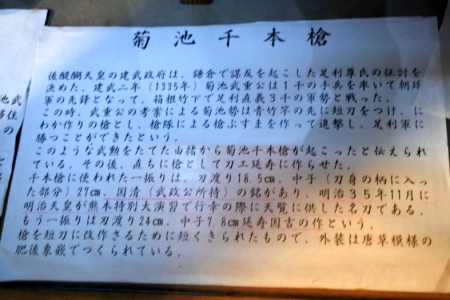 菊池千本槍
後醍醐天皇の建武政府は、鎌倉で謀反を起こした足利尊氏の征討を
決めた。建武二年（1335年）菊池武重公は１千の手兵を率いて朝廷
軍の先鋒となって、箱根竹下で足利直義３千の軍勢と戦った。
この時、武重公の考案による菊池勢は青竹竿の先に短刀をつけ、に
わか作りの槍とし、槍隊による槍ぶすまを作って進撃し、足利軍に
勝つことができたという。
このような武勲をたてた由緒から菊池千本槍が起こったと伝えられ
ている。その後、直ちに槍として刀工延寿に作らせた。
千本槍に使われた一振りは、刃渡り18.5㎝、中子（刀身の柄に入っ
た部分）27㎝、国清（武政公所持）の銘があり、明治３５年11月に
明治天皇が熊本特別大演習で行幸の際に天覧に供した名刀である。
もう一振りは刃渡り24㎝、中子7.8㎝延寿国吉の作という。
槍を短刀に改作さるために短くきられたもので、外装は唐草模様の
肥後象嵌でつくられている。